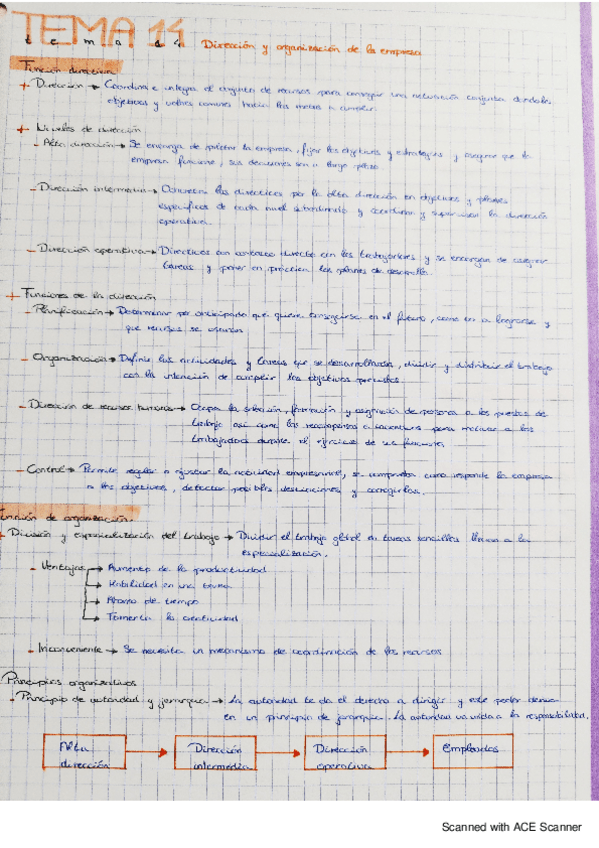 TEMA 14
tema 14 Dirección y organización de la empresa
Función directiva
+ Dirección → Coordina e integra el conjunto de recursos para conseguir una actuación conjunta dándoles
objetivos y valores comunes hacia las metas a cumplir.
+ Niveles de dirección
- Alta dirección → Se encarga de pilotar la empresa, fijar los objetivos y estrategias y asegurar que la
empresa funcione, sus decisiones son a largo plazo.
- Dirección intermedia → Concretan las directrices por la alta dirección en objetivos y planes
específicos de cada nivel subordinado y coordinan y supervisan la dirección
operativa.
- Dirección operativa → Directivos con contacto directo con los trabajadores y se encargan de asignar
tareas y poner en práctica los planes de desarrollo.
+ Funciones de la dirección
- Planificación → Determinar por anticipado qué quiere conseguirse en el futuro, como va a lograrse y
que recursos se usarán
- Organización → Definir las actividades y tareas que se desarrollarán, dividir y distribuir el trabajo
con la intención de cumplir los objetivos previstos
- Dirección de recursos humanos → Ocupa la selección, formación y asignación de persona a los puestos de
trabajo así como las recompensa o incentivos para motivar a los
trabajadores durante el ejercicio de sus funciones
- Control → Permite regular o ajustar la actividad empresarial, se comprueba como responde la empresa
a los objetivos, detectar posibles desviaciones y corregirlas.
Función de organización.
+ División y especialización del trabajo → Dividir el trabajo global en tareas sencillas llevan a la
especialización.
- Ventajas → Aumento de la productividad
→ Habilidad en una tarea
→ Ahorro de tiempo
→ Fomenta la creatividad
- Inconveniente → Se necesita un mecanismo de coordinación de los recursos
Principios organizativos
- Principio de autoridad y jerarquía → La autoridad te da el derecho a dirigir y este poder deriva
en un principio de jerarquía. La autoridad va unida a la responsabilidad.
Alta dirección → Dirección intermedia → Dirección operativa → Empleados
Scanned with ACE Scanner